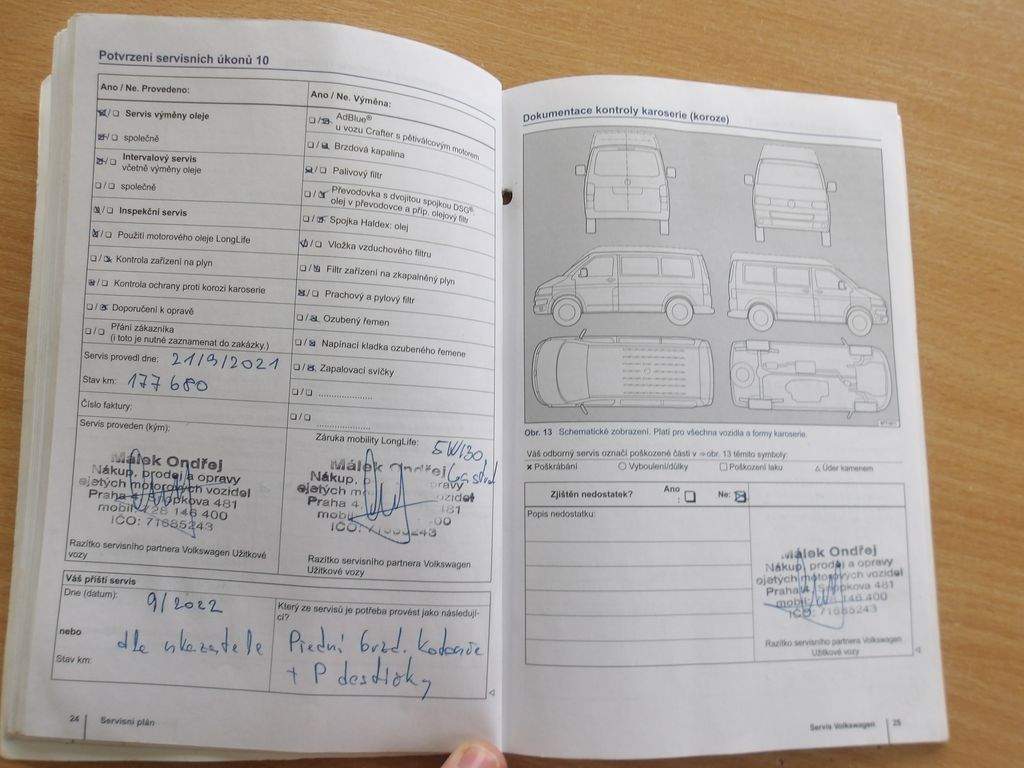 Potvrzení servisních úkonů 10
Ano / Ne. Provedeno:
Servis výměny oleje
společně
Intervalový servis
včetně výměny oleje
společně
Inspekční servis
Použití motorového oleje LongLife
Kontrola zařízení na plyn
Kontrola ochrany proti korozi karoserie
Doporučení k opravě
Přání zákazníka
(i toto je nutné zaznamenat do zakázky.)
Servis provedl dne: 21/9/2021
Stav km: 177 680
Číslo faktury:
Servis proveden (kým):
Málek Ondřej
Nákup, prodej a opravy
ojetých motorových vozidel
Praha 4, 481
mobil: 728 146 400
IČO: 71685243
Razítko servisního partnera Volkswagen Užitkové
vozy
Ano / Ne. Výměna:
AdBlue®
u vozu Crafter s pětiválcovým motorem
Brzdová kapalina
Palivový filtr
Převodovka s dvojitou spojkou DSG®:
olej v převodovce a příp. olejový filtr
Spojka Haldex: olej
Vložka vzduchového filtru
Filtr zařízení na zkapalněný plyn
Prachový a pylový filtr
Ozubený řemen
Napínací kladka ozubeného řemene
Zapalovací svíčky
Záruka mobility LongLife:
5W/30
Málek Ondřej
Nákup, opravy
ojetých vozidel
Praha 4, 481
IČO: 71685243
Razítko servisního partnera Volkswagen
Užitkové vozy
Váš příští servis
Dne (datum): 9/2022
nebo
dle ukazatele
Stav km:
Který ze servisů je potřeba provést jako následují-
cí?
Přední brzd. kotouče
+ P destičky
24 Servisní plán
Dokumentace kontroly karoserie (koroze)
Obr. 13 Schematické zobrazení. Platí pro všechna vozidla a formy karoserie.
Váš odborný servis označí poškozené části v ⇒ obr. 13 těmito symboly:
× Poškrábání ○ Vyboulení/důlky □ Poškození laku △ Úder kamenem
Zjištěn nedostatek? Ano
: Ne:
Popis nedostatku:
Málek Ondřej
Nákup, prodej a opravy
ojetých motorových vozidel
Praha 4, 481
mobil: 146 400
IČO: 71685243
Razítko servisního partnera Volkswagen
Užitkové vozy
Servis Volkswagen 25